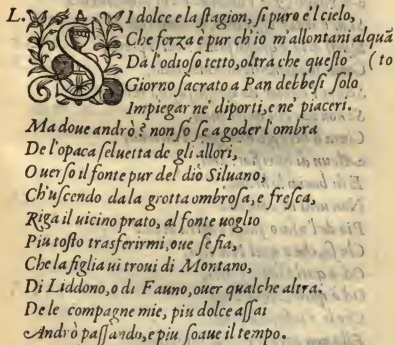 L. SI dolce e la ſtagion, ſi puro e'l cielo,
Che forza è pur ch'io m'allontani alquā
Da l'odioſo tetto, oltra che queſto (to
Giorno ſacrato a Pan debbeſi ſolo
Impiegar ne' diporti, e ne' piaceri.
Ma doue andrò? non ſo ſe a goder l'ombra
De l'opaca ſeluetta de gli allori,
O uerſo il fonte pur del dio Siluano,
Ch'uſcendo da la grotta ombroſa, e freſca,
Riga il uicino prato, al fonte uoglio
Piu toſto trasferirmi, oue ſe fia,
Che la figlia ui troui di Montano,
Di Liddono, o di Fauno, ouer qualche altra.
De le compagne mie, piu dolce aſſai
Andrò paſſando, e piu ſoaue il tempo.